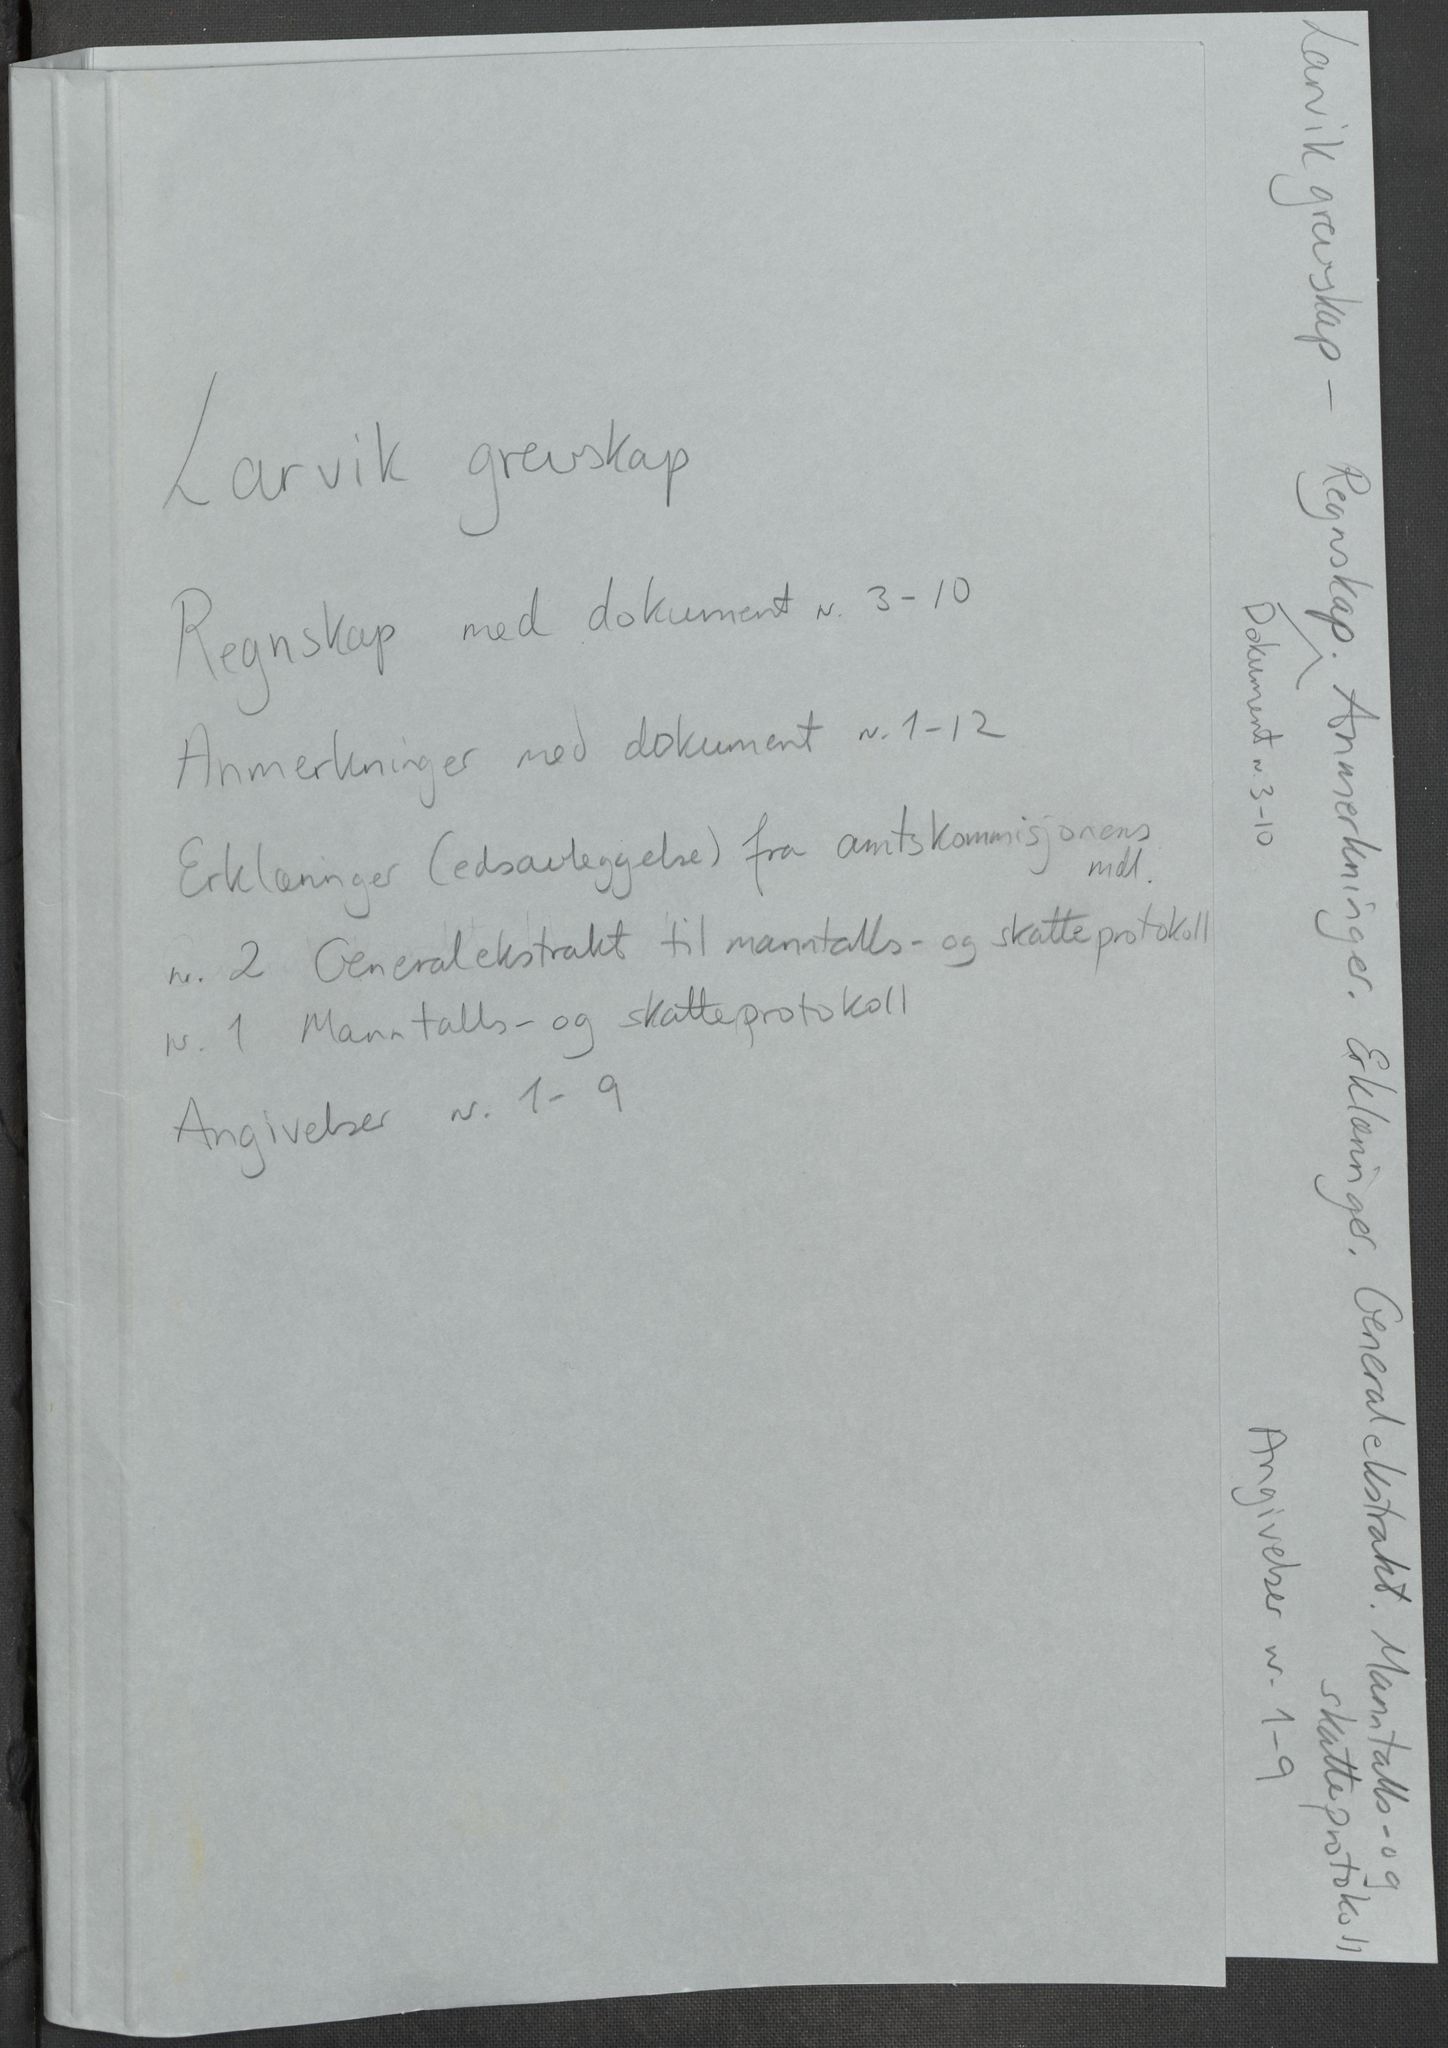 Larvik grevskap
Regnskap med dokument nr. 3-10
Anmerkninger med dokument nr. 1-12
Erklæringer (edsavleggelse) fra amtskommisjonens
mdl.
nr. 2 Generalekstrakt til manntalls- og skatteprotokoll
nr. 1 Manntalls- og skatteprotokoll
Angivelser nr. 1-9
Larvik grevskap – Regnskap. Anmerkninger. Erklæringer. Generalekstrakt. Manntalls- og
skatteprotokoll
Dokument nr. 3-10
Angivelser nr. 1-9